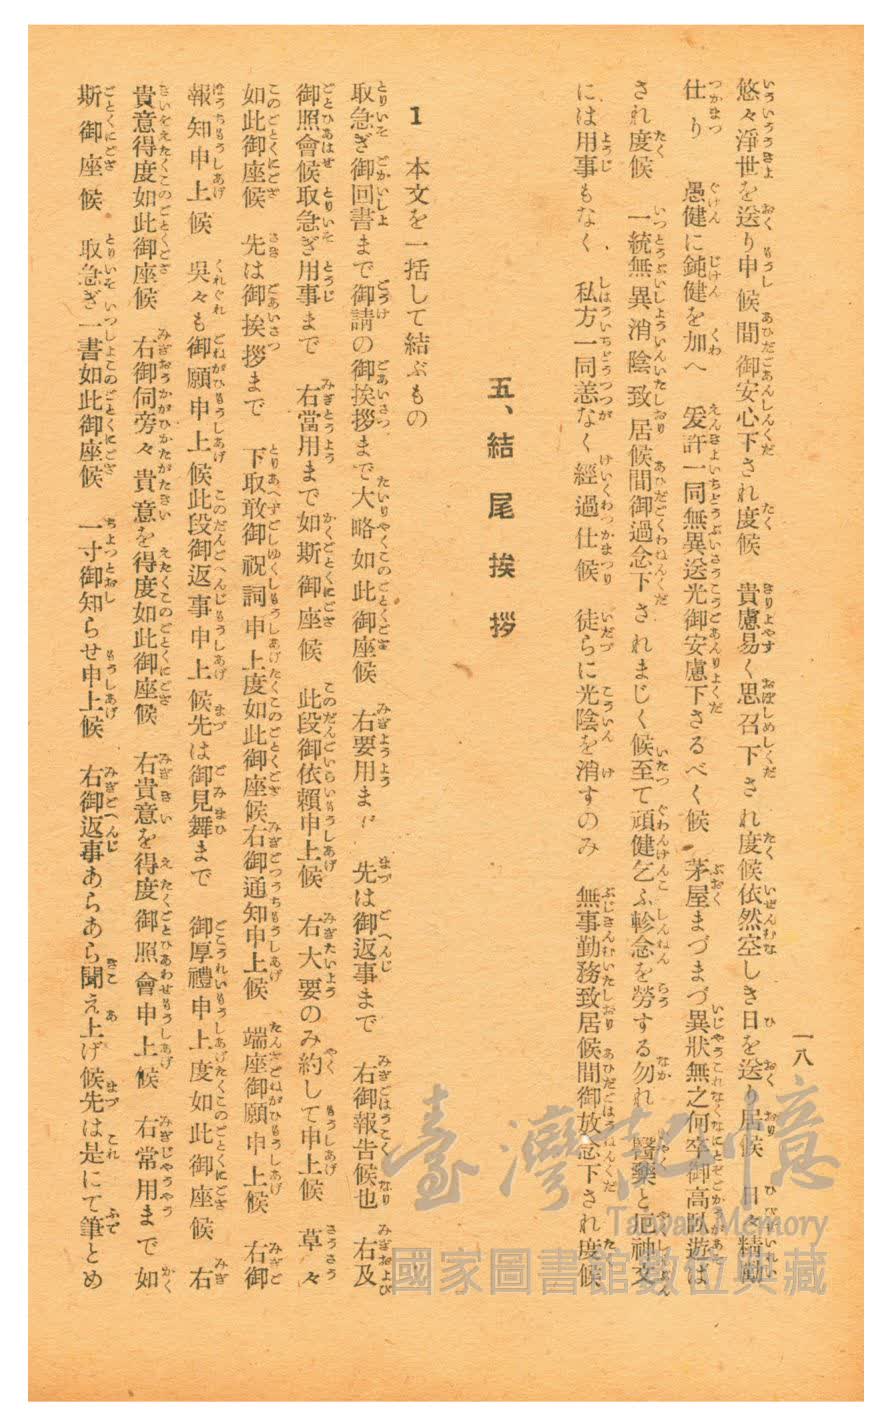 一八
悠々淨世を送り申候間御安心下され度候　貴慮易く思召下され度候依然空しき日を送り居候　日々精勤
仕り　愚健に鈍健を加へ　爰許一同無異送光御安慮下さるべく候　茅屋まづまづ異狀無之何卒御高臥遊ば
され度候　一統無異消陰致居候間御過念下されまじく候至て頑健乞ふ軫念を勞する勿れ　醫藥と厄神文
には用事もなく、私方一同恙なく經過仕候　徒らに光陰を消すのみ　無事勤務致居候間御放念下され度候
五、結尾挨拶
1　本文を一括して結ぶもの
取急ぎ御回書まで御請の御挨拶まで大略如此御座候　右要用まで　先は御返事まで　右御報告候也　右及
御照會候取急ぎ用事まで　右當用まで如斯御座候　此段御依賴申上候　右大要のみ約して申上候　草々
如此御座候　先は御挨拶まで　下取敢御祝詞申上度如此御座候右御通知申上候　端座御願申上候　右御
報知申上候　吳々も御願申上候此段御返事申上候先は御見舞まで　御厚禮申上度如此御座候　右
貴意得度如此御座候　右御伺旁々貴意を得度如此御座候　右貴意を得度御照會申上候　右常用まで如
斯御座候　取急ぎ一書如此御座候　一寸御知らせ申上候　右御返事あらあら聞え上げ候先は是にて筆とめ
臺灣記憶
Taiwan Memory
國家圖書館數位典藏